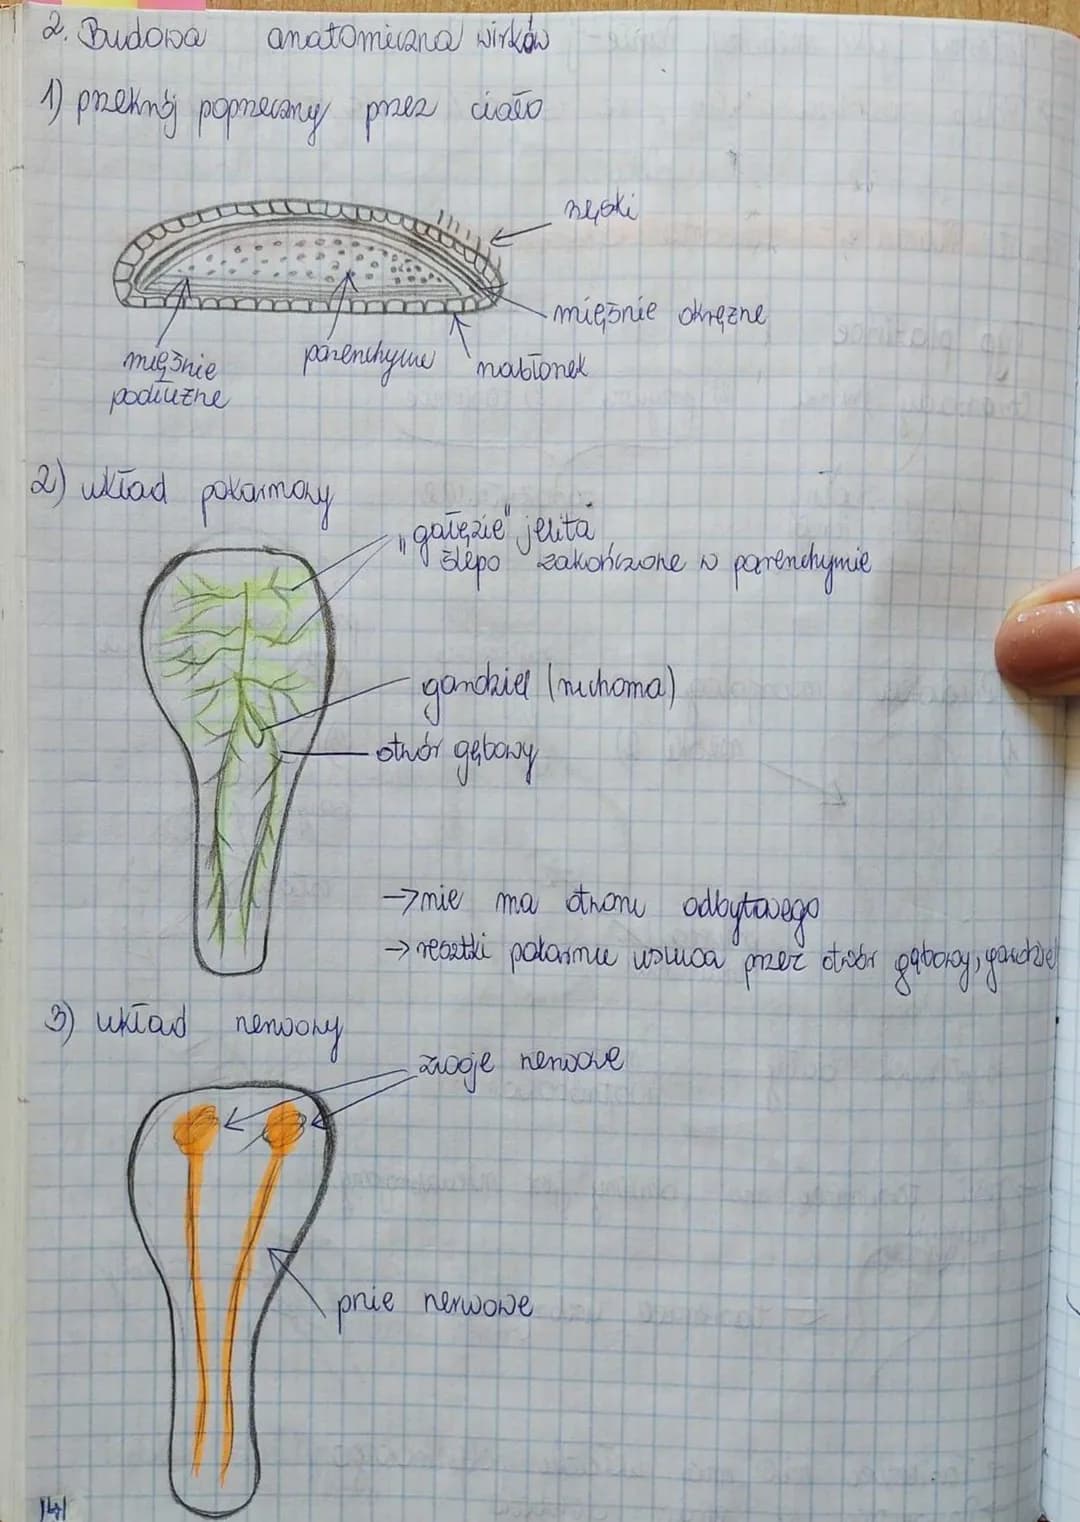 2. Budowa anatomiczna wirków
1) przekrój poprzeczny przez ciało
rzęski
mięśnie okrężne
mięśnie
podłużne
parenchyma
nabłonek
2) układ pokarmowy
"gałęzie" jelita
ślepo zakończone w parenchymie
gardziel (ruchoma)
otwór gębowy
→ nie ma otworu odbytowego
→ resztki pokarmu usuwa przez otwór gębowy, gardziel
3) układ nerwowy
zwoje nerwowe
pnie nerwowe